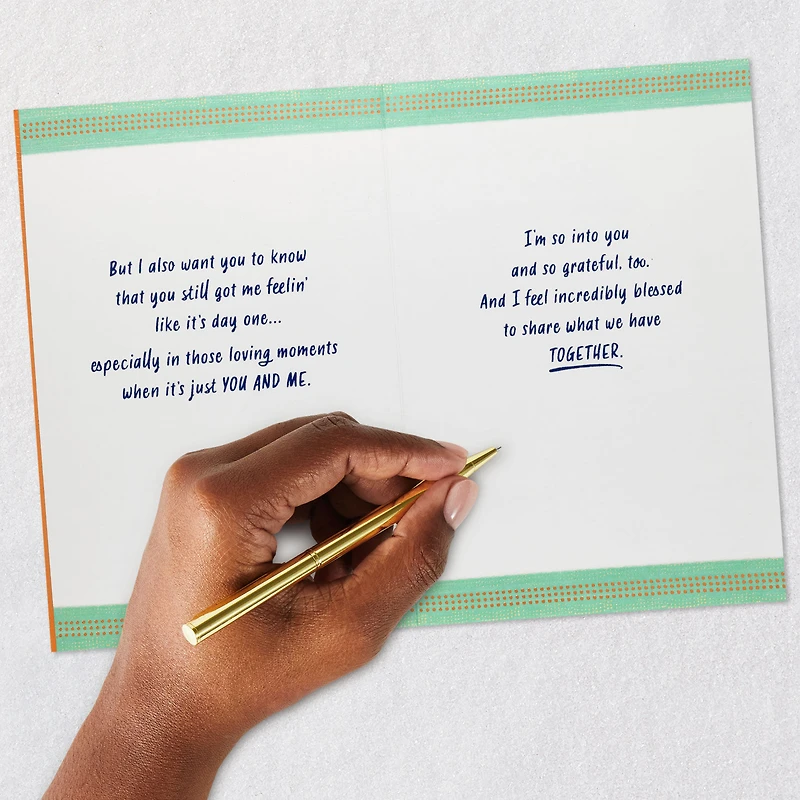 But I also want you to know
that you still got me feelin'
like it's day one...
especially in those loving moments
when it's just YOU AND ME.
I'm so into you
and so grateful, too.
And I feel incredibly blessed
to share what we have
TOGETHER.